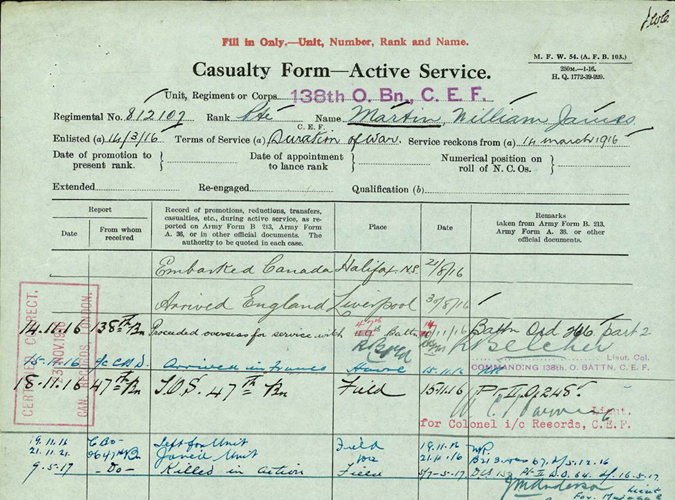 Fill in Only.—Unit, Number, Rank and Name.
M. F. W. 54. (A. F. B. 103.)
250M.—1-16.
H. Q. 1772-39-920.
Casualty Form—Active Service.
Unit, Regiment or Corps 138th O. Bn., C. E. F.
Regimental No. 812107 Rank Pte Name Martin, William James
C. E. F.
Enlisted (a) 14/3/16 Terms of Service (a) Duration of War. Service reckons from (a) 14 march 1916
Date of promotion to present rank. Date of appointment to lance rank Numerical position on roll of N. C. Os.
Extended Re-engaged Qualification (b)
Report
Date From whom received
Record of promotions, reductions, transfers, casualties, etc., during active service, as reported on Army Form B 213, Army Form A. 36, or in other official documents. The authority to be quoted in each case.
Place
Date
Remarks taken from Army Form B. 213, Army Form A. 36. or other official documents.
Embarked Canada Halifax N.S. 21/8/16
Arrived England Liverpool 30/8/16
14.11.16 138th Bn Proceeded overseas for service with 47th Battn /11/16 Battn Ord 266 part 2
R Belcher
Lieut. Col.
COMMANDING 138th. O. BATTN, C. E. F.
15-11-16 Arrived in France Havre 15.11.16
18-11-16 47th Bn T.O.S. 47th Bn Field 15/11/16 Pt II O 248
Lieut.
for Colonel i/c Records, C. E. F.
19.11.16 Left for Unit Field 18.11.16
21.11.21. Joined Unit 21.11.16
9-5-17 -Do- Killed in Action Field 5/7-5-17
CERTIFIED CORRECT.
NOV. 1916
CAN. RECORDS, LONDON.